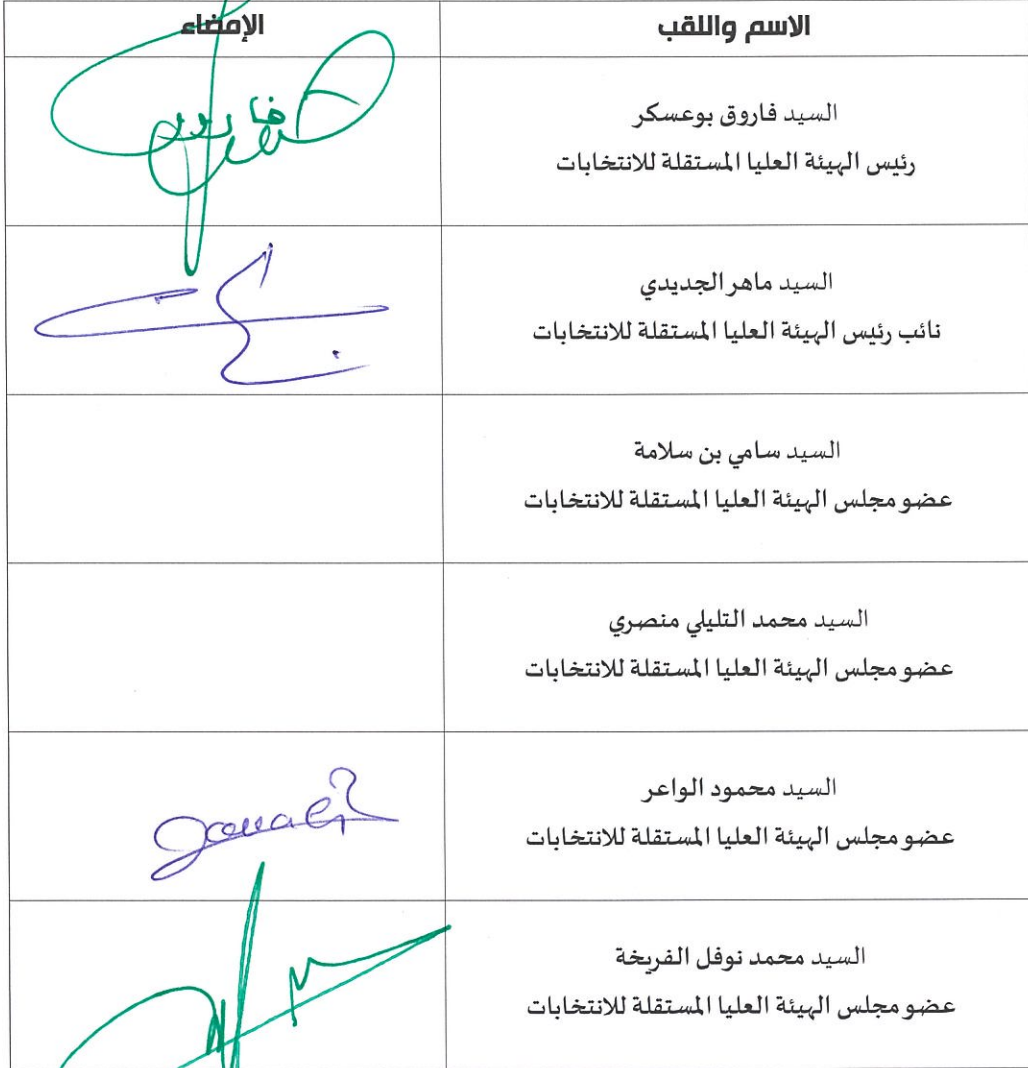 الاسم واللقب الإمضاء
السيد فاروق بوعسكر
رئيس الهيئة العليا المستقلة للانتخابات
السيد ماهر الجديدي
نائب رئيس الهيئة العليا المستقلة للانتخابات
السيد سامي بن سلامة
عضو مجلس الهيئة العليا المستقلة للانتخابات
السيد محمد التليلي منصري
عضو مجلس الهيئة العليا المستقلة للانتخابات
السيد محمود الواعر
عضو مجلس الهيئة العليا المستقلة للانتخابات
السيد محمد نوفل الفريخة
عضو مجلس الهيئة العليا المستقلة للانتخابات